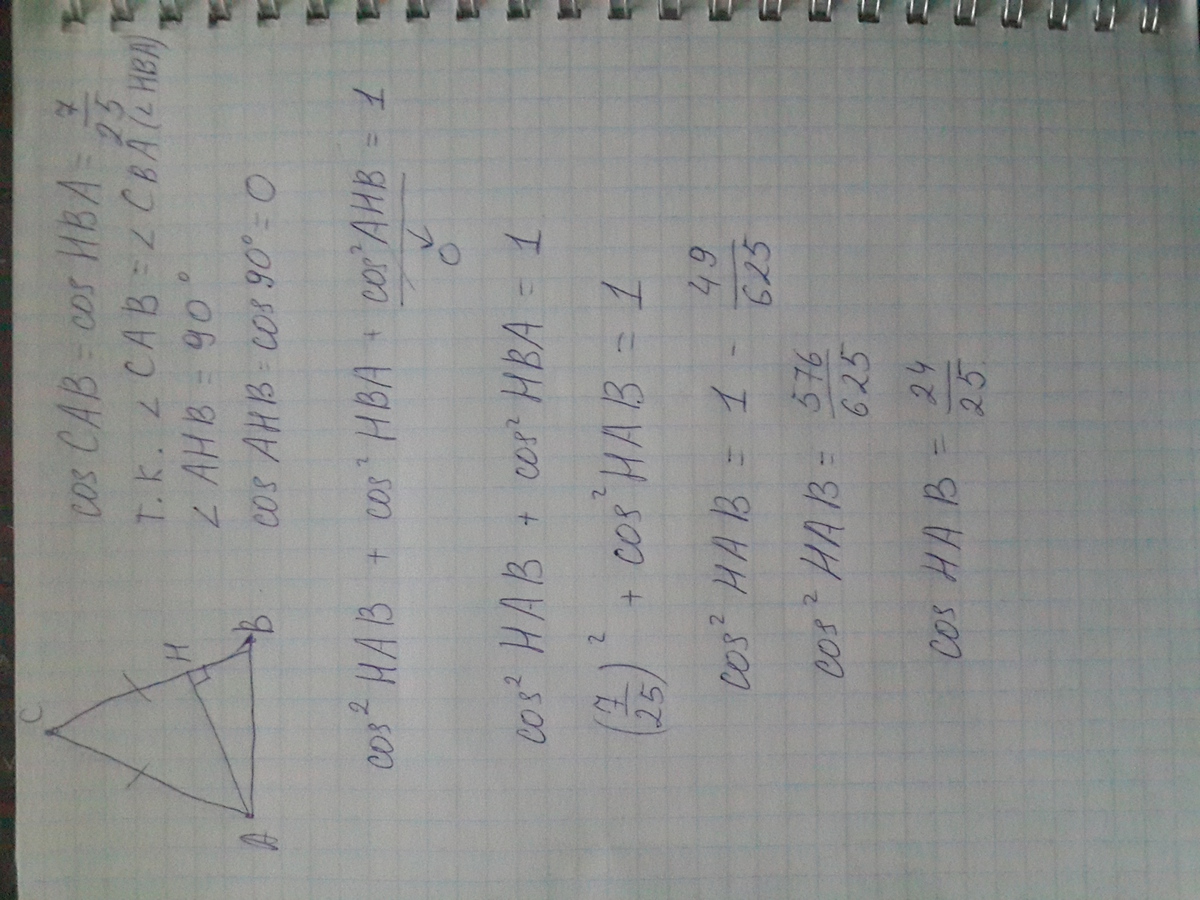 C
H
A
B
cos CAB = cos HBA = 7/25
т.к. ∠ CAB = ∠ CBA (∠ HBA)
∠ AHB = 90°
cos AHB = cos 90° = 0
cos² HAB + cos² HBA + cos² AHB = 1
0
cos² HAB + cos² HBA = 1
(7/25)² + cos² HAB = 1
cos² HAB = 1 - 49/625
cos² HAB = 576/625
cos HAB = 24/25